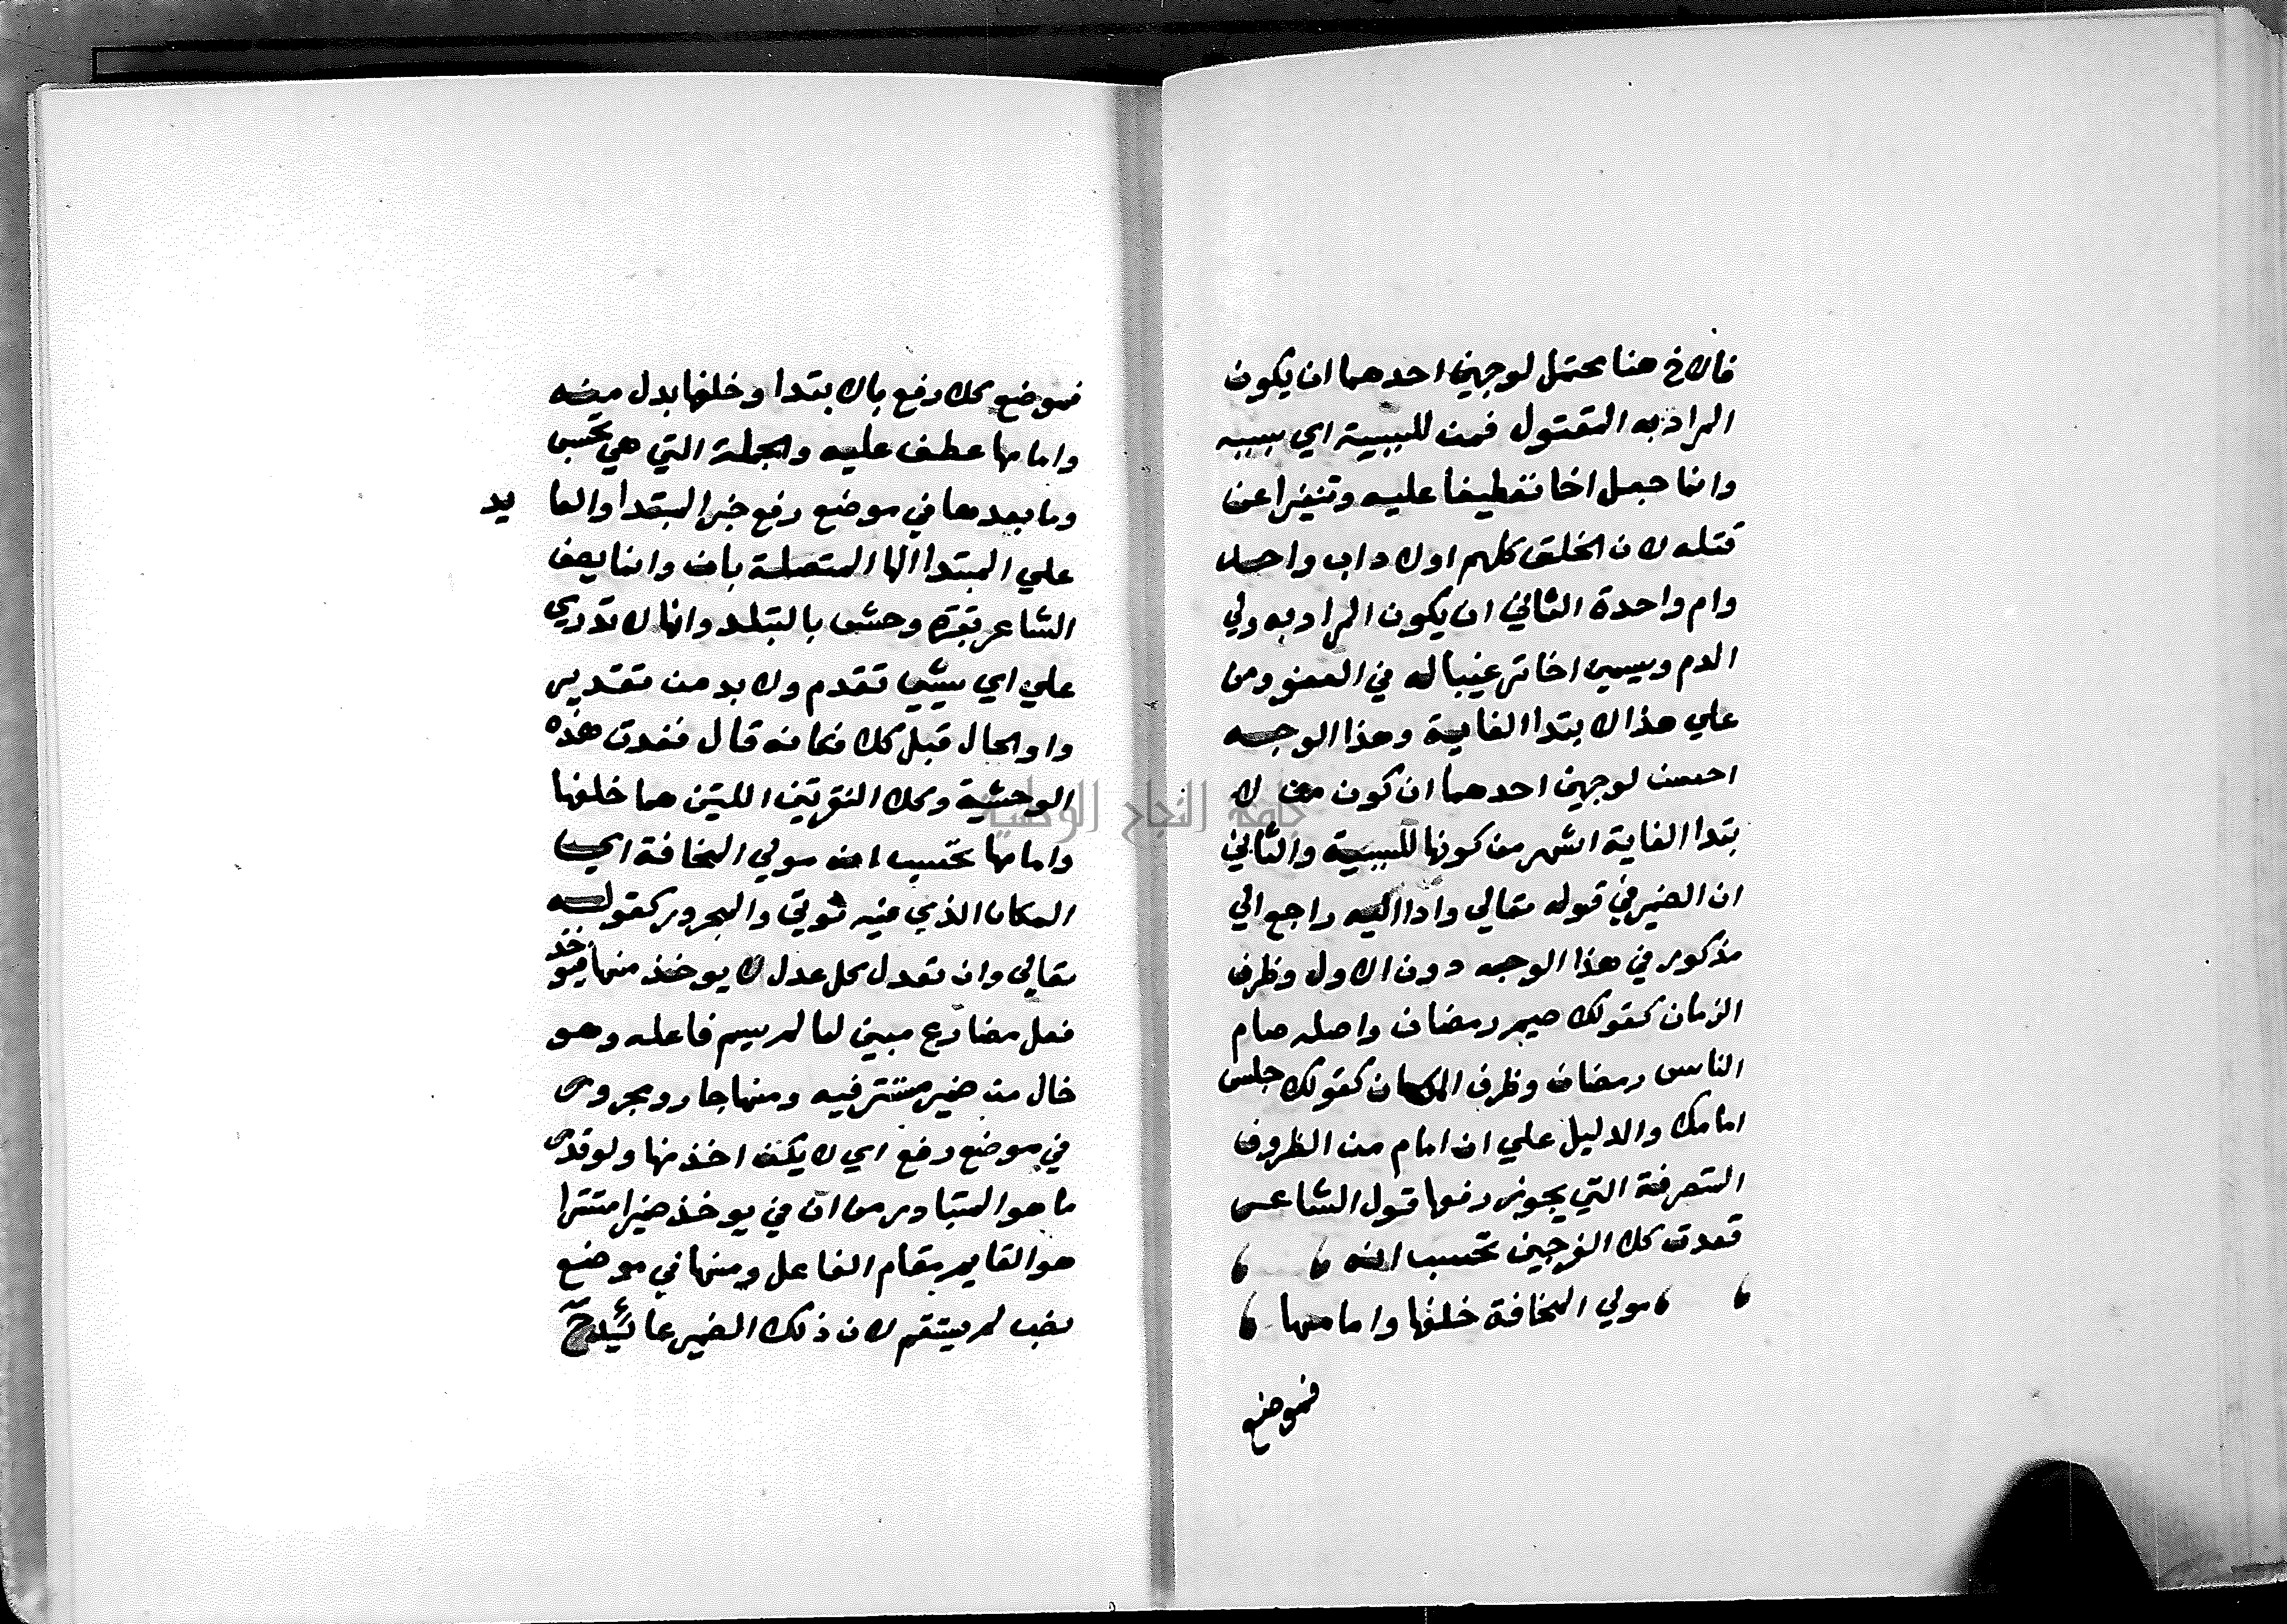 فالاخ هنا محتمل لوجهين احدهما ان يكون
المراد به المقتول فمن للسببية اي بسببه
وانما جعل اخا تعطيفا عليه وتنفيرا عن
قتله لان الخلق كلهم اولاد اب واحد
وام واحدة الثاني ان يكون المراد به ولي
الدم وسمي اخا ترغيبا له في العفو ومن
علي هذا لابتدا الغاية وهذا الوجه
احسن لوجهين احدهما ان كون من لا
بتدا الغاية اشهر من كونها للسببية والثاني
ان الضمير في قوله تعالي واداء اليه راجع الي
مذكور في هذا الوجه دون الاول وظرف
الزمان كقولك صيم رمضان واصله صام
الناس رمضان وظرف المكان كقولك جلس
امامك والدليل علي ان امام من الظروف
المتصرفة التي يجوز رفعها قول الشاعر
فغدت كلا الفرجين تحسب انه
مولي المخافة خلفها وامامها
فموضع
فموضع كلا رفع بالابتدا وخلفها بدل منه
وامامها عطف عليه والجملة التي هي تحسب
وما بعدها في موضع رفع خبر المبتدا والعا يد
علي المبتدا الها المتصلة بان وانما يصف
الشاعر بقرة وحش بالتبلد وانها لا تدري
علي اي شيي تقدم ولا بد من تقدير
واو الحال قبل كلا فكانه قال فغدت هذه
الوحشية وكلا الثغرتين اللتين هما خلفها
وامامها تحسب انه مولي المخافة اي
المكان الذي فيه توتي والمجرور كقوله
تعالي وان تعدل كل عدل لا يوخذ منها فيوخذ
فعل مضارع مبني لما لم يسم فاعله وهو
خال من ضمير مستتر فيه ومنها جار ومجرور
في موضع رفع اي لا يكن اخذ منها ولو قدر
ما هو المتبادر من ان في يوخذ ضميرا مستترا
هو القايم مقام الفاعل ومنها في موضع
نصب لم يستقم لان ذلك الضمير عائد